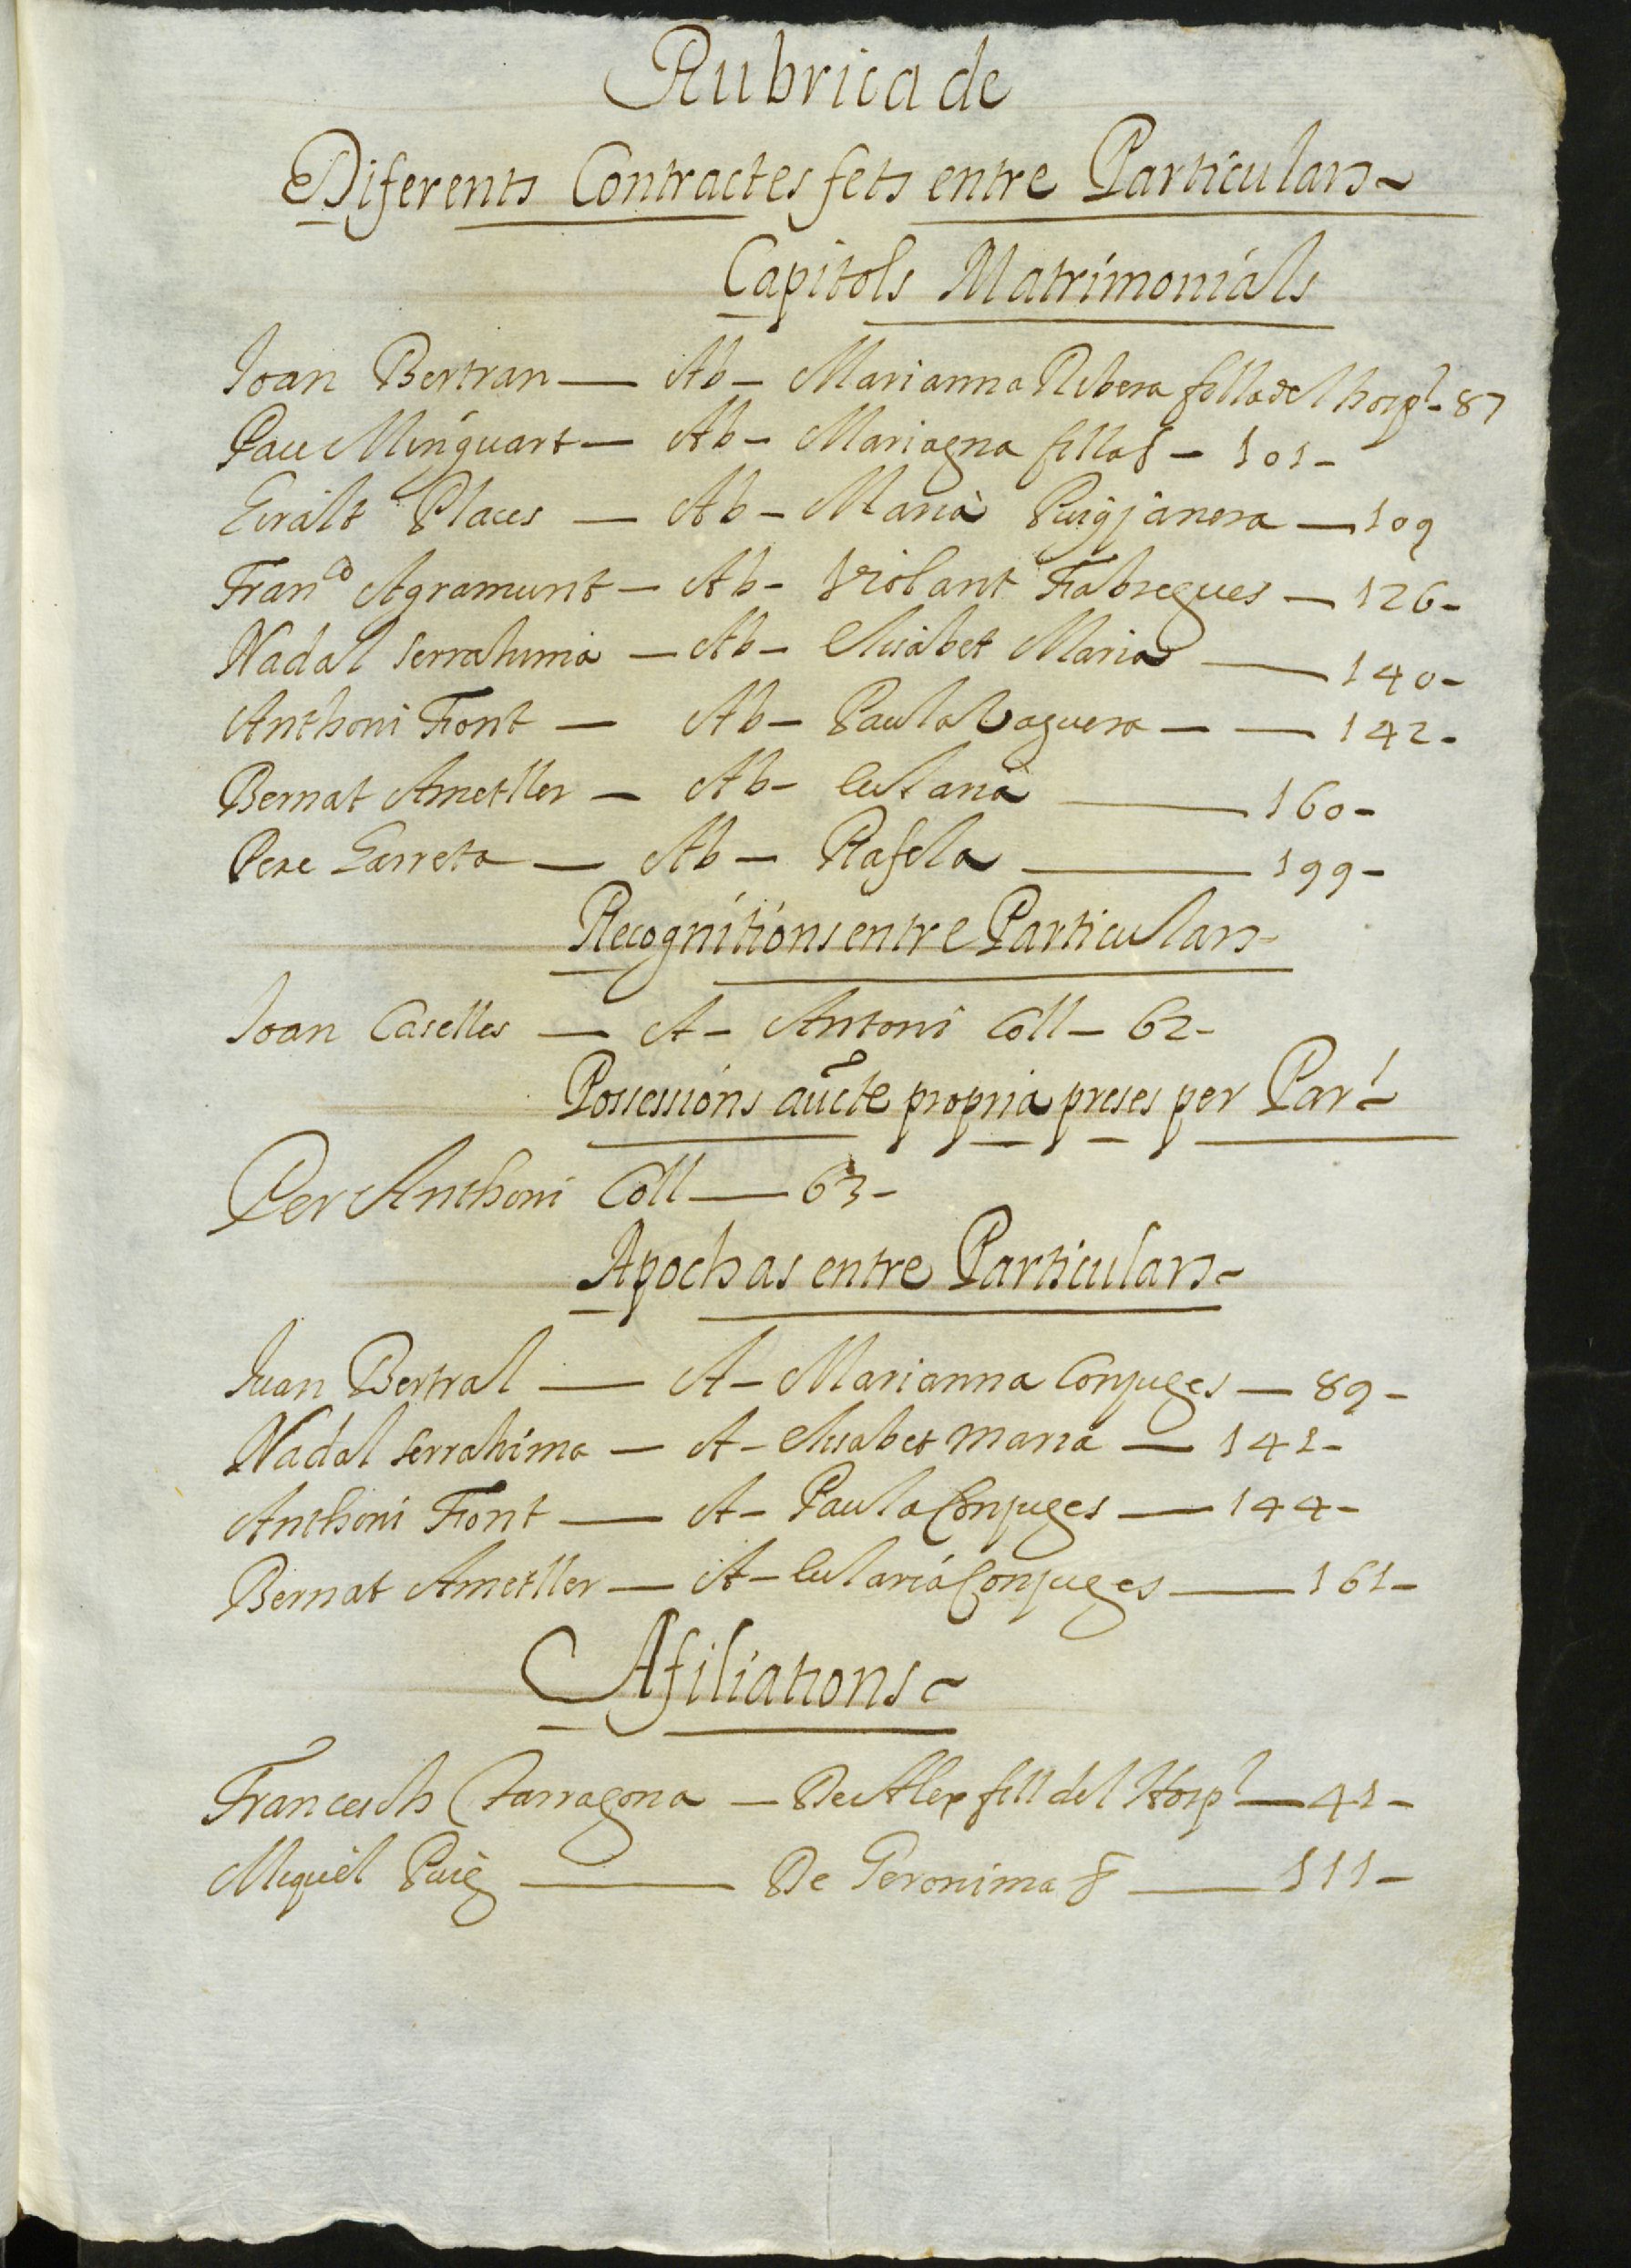 Rubrica de
Diferents Contractes fets entre Particulars
Capitols Matrimonials
Joan Bertran — Ab — Marianna Ribera filla del hospl - 87
Pau Minguart — Ab — Mariagna filla 8 — 101 -
Guralt Places — Ab — Maria Puigjanera — 109
Franco Agramunt — Ab — Violant Fabregues — 126 -
Nadal Serrahima — Ab — Elisabet Maria — 140 -
Anthoni Font — Ab — Paula Vaguera — — 142 -
Bernat Ametller — Ab — Eularia — 160 -
Pere Garreta — Ab — Rafela — 199 -
Recognitions entre Particulars
Joan Caselles — A — Antoni Coll — 62 -
Possessions aucte propria preses per Parl
Per Anthoni Coll — 63 -
Apochas entre Particulars
Juan Bertral — A — Marianna Conjuges — 89 -
Nadal Serrahima — A — Elisabet Maria — 141 -
Anthoni Font — A — Paula Conjuges — 144 -
Bernat Ametller — A — Eularia Conjuges — 161 -
Afiliations
Francesch Tarragona — De Alex fill del Hospl — 41 -
Miquel Puig — De Geronima 8 — 111 -